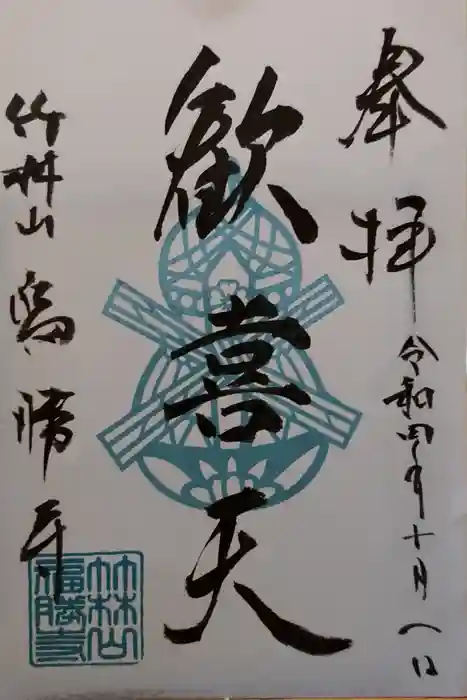 奉拝
令和四年十月八日
歓喜天
竹林山
福勝寺
竹林山
福勝寺